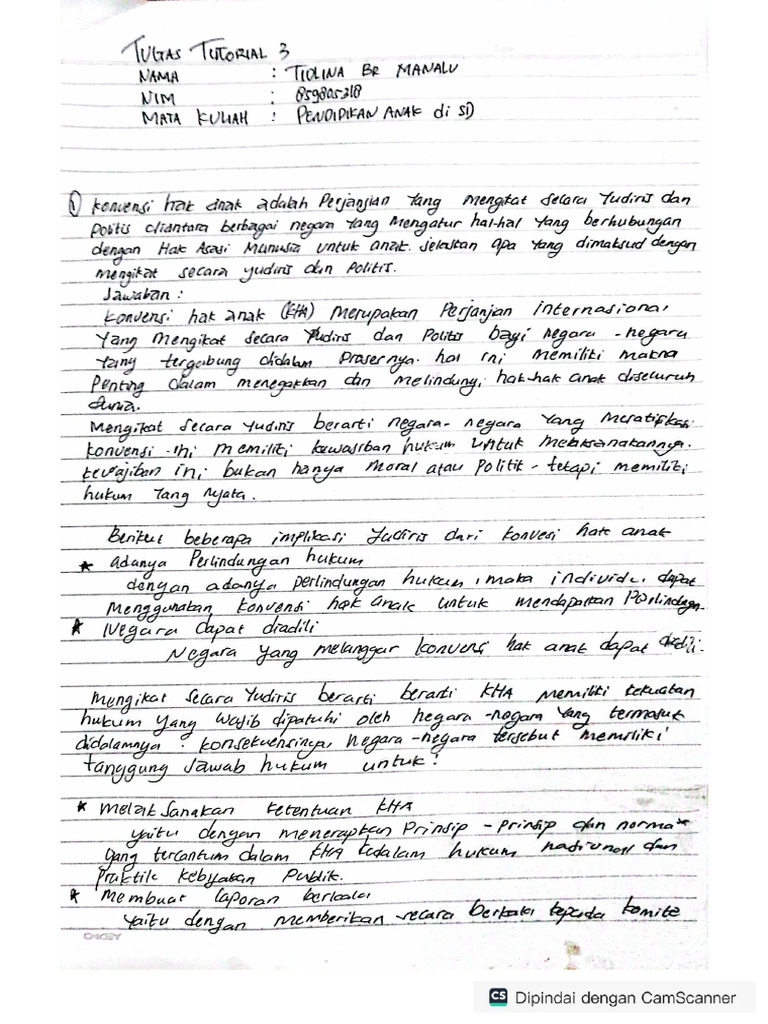 TUGAS TUTORIAL 3
NAMA : TIOLINA BR MANALU
NIM : 859805218
MATA KULIAH : PENDIDIKAN ANAK di SD
① Konvensi hak anak adalah Perjanjian Yang mengikat secara Yudiris dan
Politis diantara berbagai negara Yang Mengatur hal-hal Yang berhubungan
dengan Hak Asasi Manusia untuk anak. Jelaskan apa yang dimaksud dengan
mengikat secara yudiris dan Politis.
Jawaban :
Konvensi hak anak (KHA) Merupakan Perjanjian internasional
Yang mengikat secara Yudiris dan Politis bagi negara - negara
Yang tergabung didalam . hal ini memiliki makna
Penting dalam menegakkan dan melindungi hak-hak anak diseluruh
dunia.
Mengikat secara Yudiris berarti negara - negara Yang Meratifikasi
konvensi ini memiliki kewajiban hukum untuk melaksanakannya.
kewajiban ini bukan hanya moral atau Politik - tetapi memiliki
hukum Yang Nyata.
Berikut beberapa implikasi Yudiris dari konvesi hak anak
* adanya Perlindungan hukum
dengan adanya perlindungan hukum, maka individu dapat
Menggunakan konvensi hak anak untuk mendapatkan
* Negara dapat diadili
Negara yang melanggar konvensi hak anak dapat diadili.
Mengikat secara Yudiris berarti berarti KHA memiliki kekuatan
hukum yang wajib dipatuhi oleh negara - negara Yang termasuk
didalamnya . konsekuensinya, Negara - negara tersebut memiliki
tanggung Jawab hukum untuk :
* Melaksanakan ketentuan KHA
yaitu dengan menerapkan Prinsip - Prinsip dan norma"
yang tercantum dalam KHA kedalam hukum nasional dan
Praktik kebijakan Publik.
* Membuat laporan berkala
yaitu dengan memberikan secara berkala kepada komite
CS Dipindai dengan CamScanner